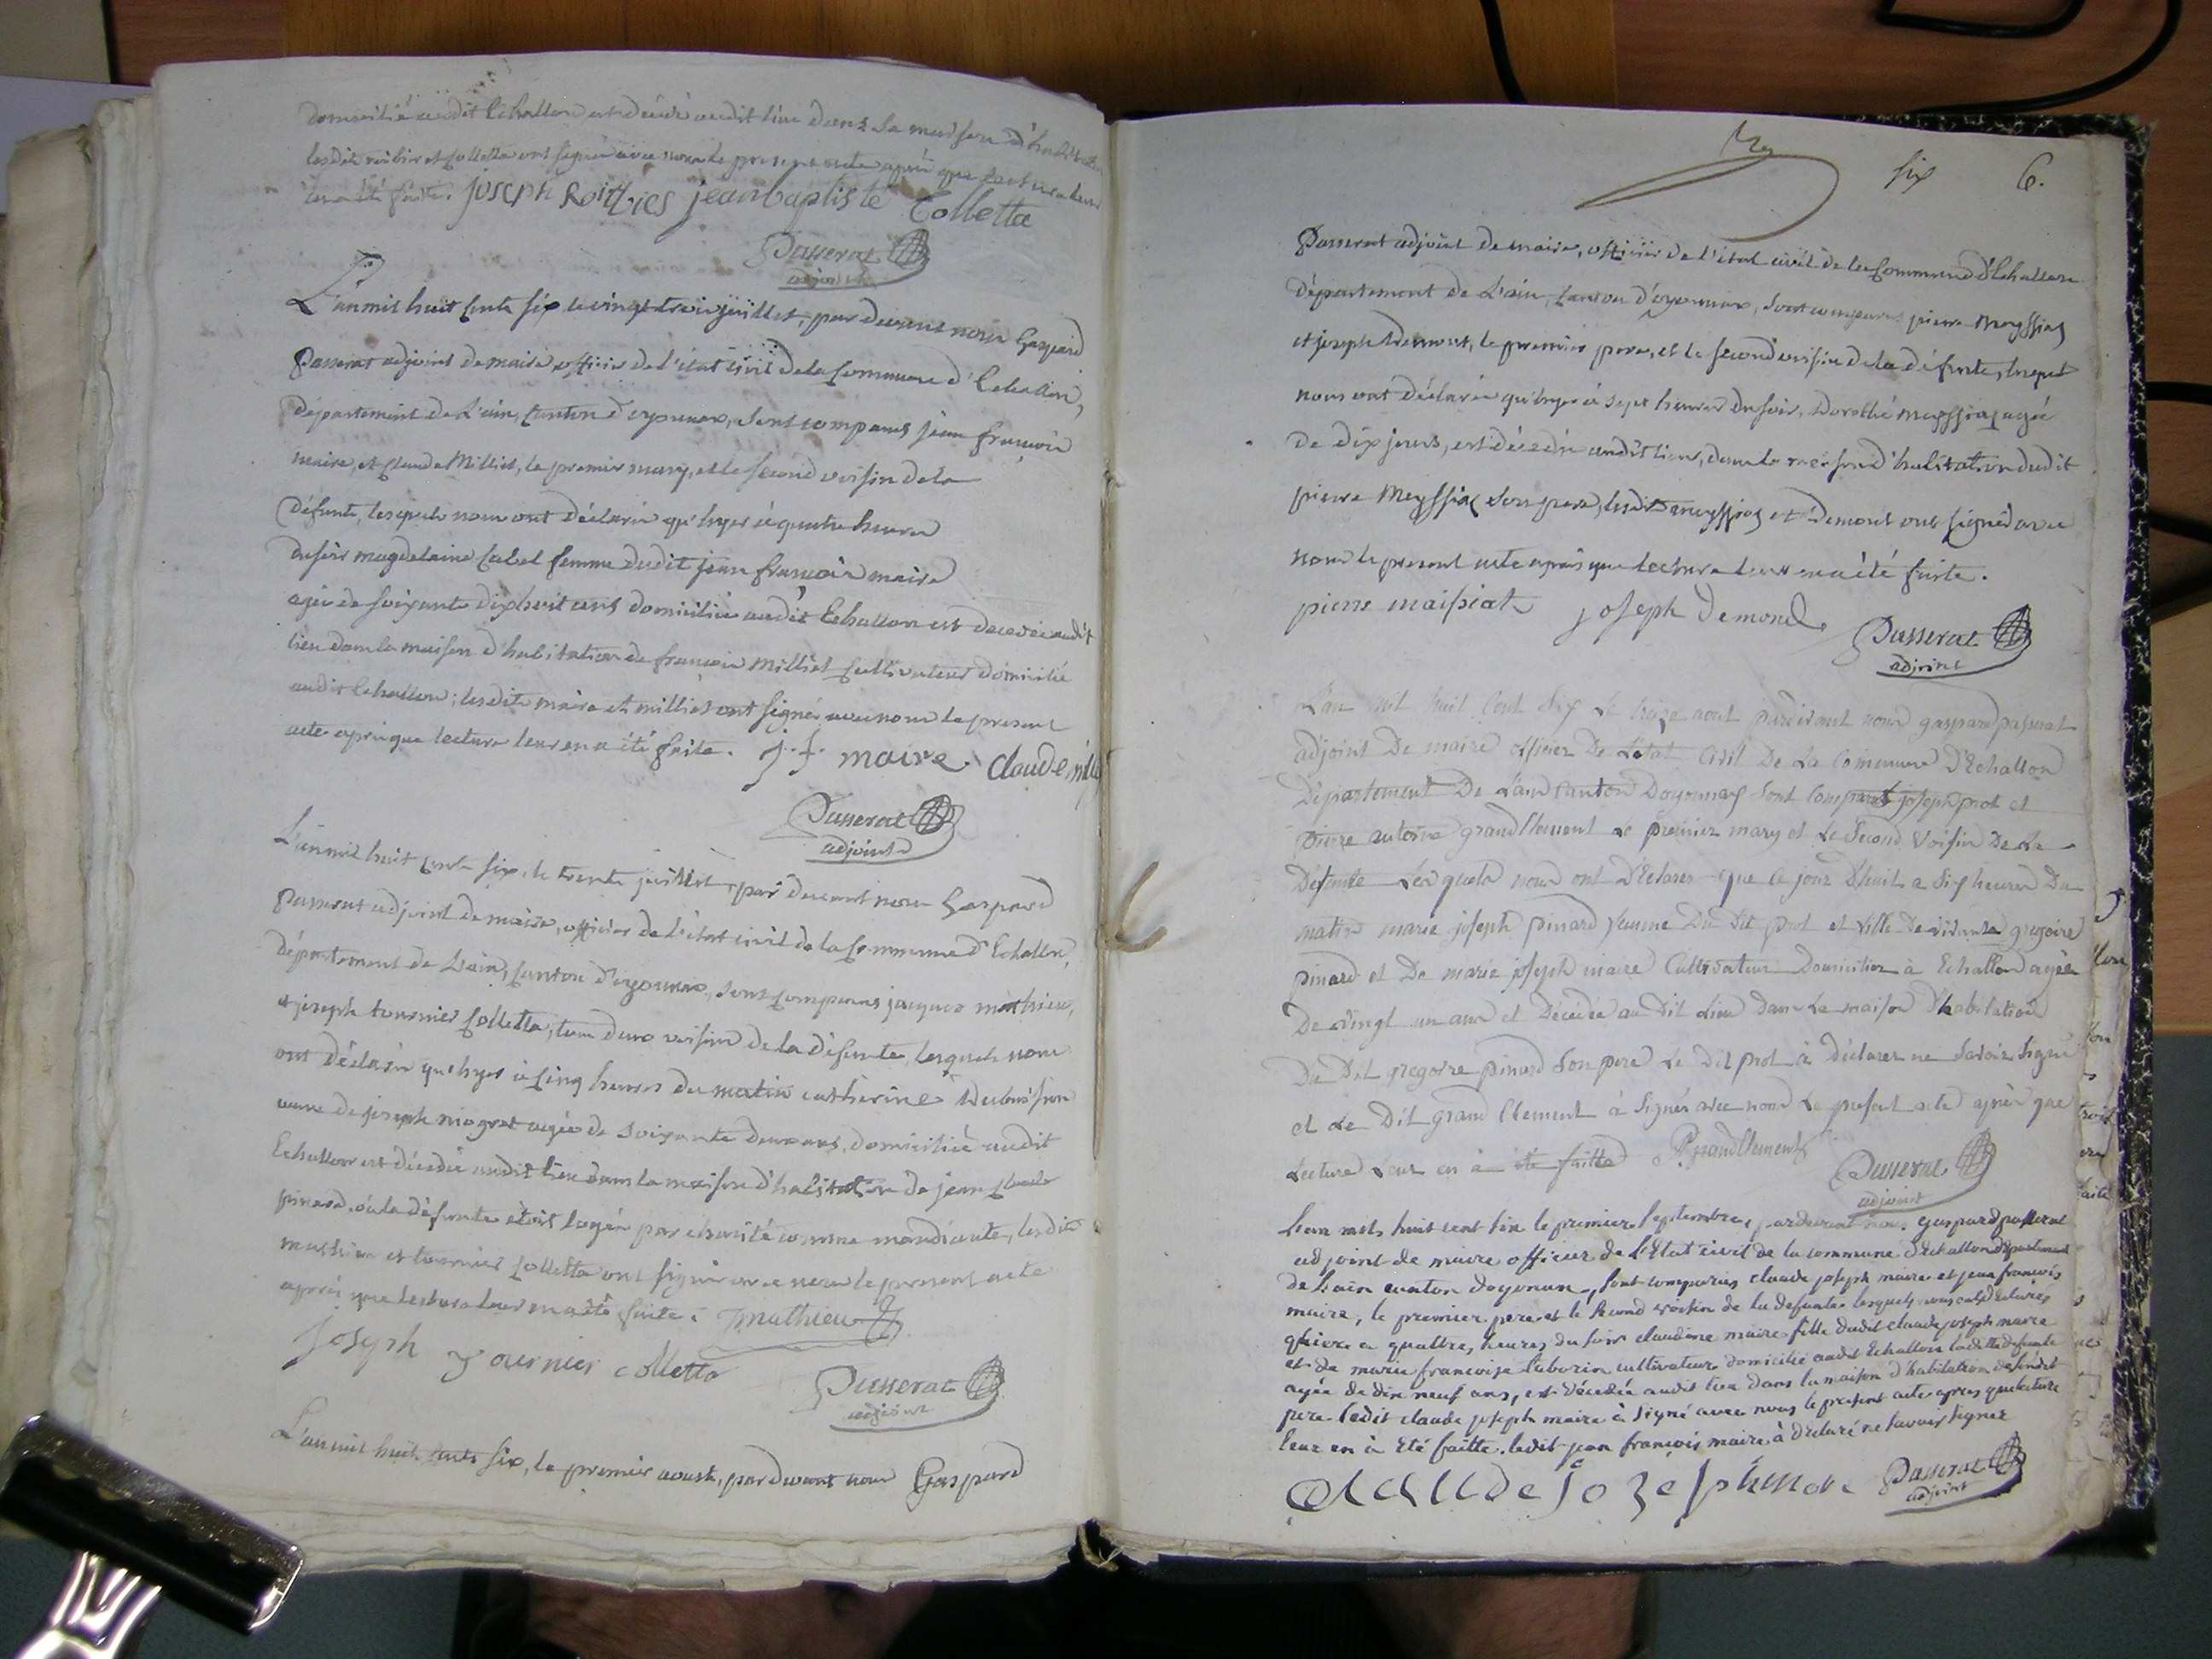 domicilié audit Echallon est décédé audit lieu dans sa maison d'habitation
lesdits et Colletta ont signé avec nous le present acte après que lecture leur
en a été faite. joseph jean baptiste Colletta
Passerat
adjoint
L'an mil huit cents six le vingt trois juillet, par devant nous Gaspard
Passerat adjoint de maire officier de l'état civil de la Commune d'Echallon,
département de L'ain, Canton d'oyonnax, sont comparus jean françois
maire, et Claude Milliet, le premier mary, et le second voisin de la
défunte, lesquels nous ont déclaré qu'hyer à quatre heures
du soir magdelaine femme dudit jean françois maire
agée de soixante dix huit ans domiciliée audit Echallon est décédée audit
lieu dans la maison d'habitation de françois Milliet Cultivateur domicilié
audit Echallon ; lesdits maire et milliet ont signé avec nous le present
acte après que lecture leur en a été faite. j. f. maire. Claude
Passerat
adjoint
L'an mil huit cents six, le trente juillet, par devant nous Gaspard
Passerat adjoint de maire, officier de l'état civil de la Commune d'Echallon,
département de L'ain, Canton d'oyonnax, sont comparus jacques mathieu,
et joseph tournier Colletta, tous deux voisins de la défunte, lesquels nous
ont déclaré qu'hyer à cinq heures du matin catherine
veuve de joseph niogret agée de soixante deux ans, domiciliée audit
Echallon est décédée audit lieu dans la maison d'habitation de jean Claude
pinard, où la défunte étoit logée par charité comme mandiante, lesdits
mathieu et tournier Colletta ont signé avec nous le present acte
après que lecture leur en a été faite. mathieu
Joseph Tournier colletta
Passerat
adjoint
L'an mil huit cents six, le premier aoust, par devant nous Gaspard
six 6.
Passerat adjoint de maire, officier de l'état civil de la Commune d'Echallon
département de L'ain, Canton d'oyonnax, sont comparus pierre Meyssiat
et joseph Demont, le premier pere, et le second voisin de la défunte, lesquels
nous ont déclaré qu'hyer à sept heures du soir, Dorothé Meyssiat agée
de dix jours, est décédée audit lieu, dans la maison d'habitation dudit
pierre Meyssiat son pere, lesdits meyssiat et Demont ont signé avec
nous le present acte après que lecture leur en a été faite.
pierre maissiat joseph Demond
Passerat
adjoint
L'an mil huit Cent Six Le treize aout pardevant nous gaspard passerat
adjoint De maire officier De L'etat Civil De La Commune D'Echallon
Département De L'ain Canton Doyonnax Sont Comparus joseph prot et
pierre antoine grandClement Le premier mary et Le Second Voisin De La
Défunte Lesquels nous ont Déclaré que Ce jour D'huit a Six heures Du
matin marie joseph pinard femme Du Dit prot et fille De gregoire
pinard et De marie joseph maire Cultivateur Domicilier à Echallon agée
De vingt un ans et Décédée au Dit Lieu Dans La maison D'habitation
Du Dit gregoire pinard Son pere Le Dit prot à déclarer ne Savoir Signé
et Le Dit grand Clement à Signer avec nous Le present acte après que
Lecture Leur en à été faitte PgrandClement
Passerat
adjoint
L'an mil huit cent six le premier septembre, pardevant nous gaspard passerat
adjoint de maire officier de l'Etat civil de la commune d'Echallon département
de L'ain canton doyonnax, sont comparus claude joseph maire et jean françois
maire, le premier pere et le second voisin de la defunte lesquels nous ont déclarés
qu'ière a quattre, heures du soir claudine maire fille dudit claude joseph maire
et de marie françoise cultivateur domicilié audit Echallon ladite defunte
agée de dix neuf ans, est décédée audit lieu dans la maison d'habitation de sondit
pere ledit claude joseph maire à signé avec nous le present acte apres que lecture
leur en à Eté faitte. ledit jean françois maire à déclaré ne savoir signer
Claude jozeph
Passerat
adjoint